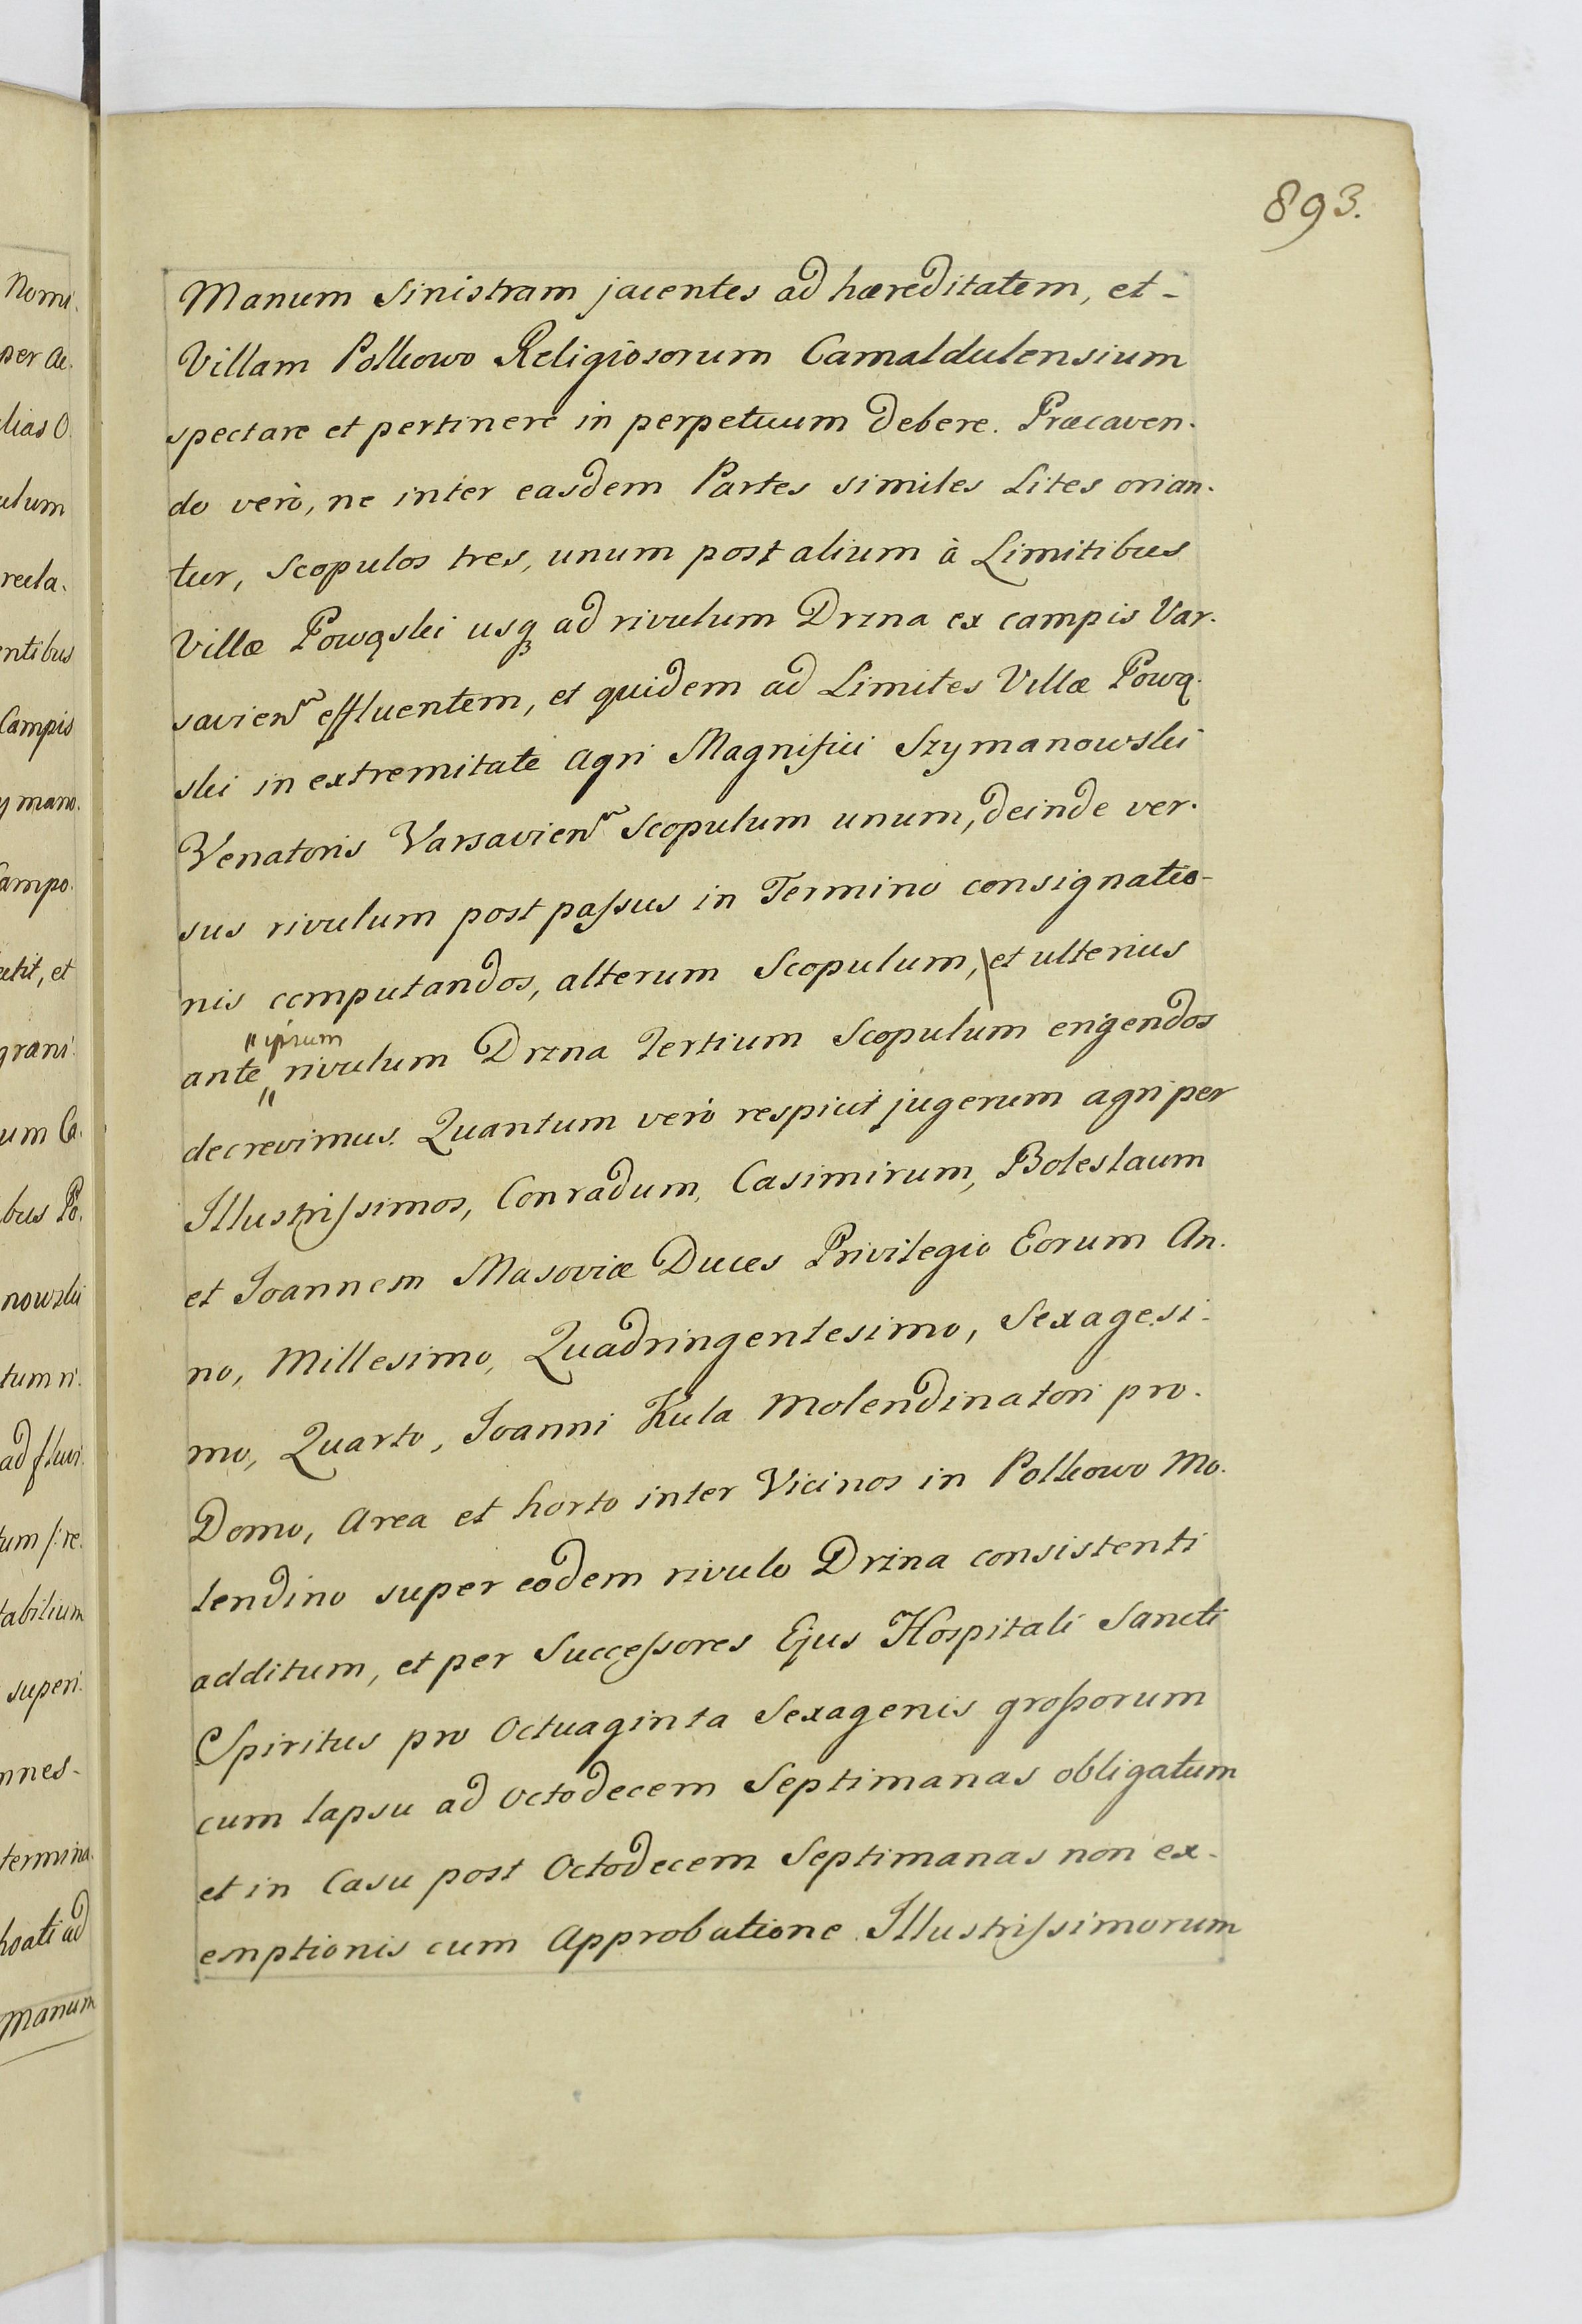 893.
Manum Sinistram jacentes ad hæreditatem, et-
Villam Polkowo Religiosorum Camaldulensium
spectare et pertinere in perpetuum debere. Præcaven-
do verò, ne inter easdem Partes similes Lites orian-
tur, Scopulos tres, unum post alium à Limitibus
Villæ Powąski usq ad rivulum Drzna ex campis Var-
savien effluentem, et quidem ad Limites Villæ Pową-
ski in extremitate Agri Magnifici Szymanowski
Venatoris Varsavien Scopulum unum, deinde ver-
sus rivulum post passus in Termino consignatio-
nis computandos, alterum Scopulum, et ulterius
" ipsum
ante " rivulum Drzna Tertium Scopulum erigendos
decrevimus. Quantum verò respicit jugerum agri per
Illustrissimos, Conradum, Casimirum, Boleslaum
et Joannem Masoviæ Duces Privilegio Eorum An-
no, Millesimo, Quadringentesimo, Sexagesi-
mo, Quarto, Joanni Kula Molendinatori pro-
Domo, Area et horto inter Vicinos in Polkowo Mo-
lendino super eodem rivulo Drzna consistenti
additum, et per Successores Ejus Hospitali Sancti
Spiritus pro Octuaginta Sexagenis grossorum
cum lapsu ad octodecem Septimanas obligatum
et in Casu post Octodecem Septimanas non ex-
emptionis cum Approbatione Illustrissimorum
Nomi-
per Ae-
lias O
ulum
recta-
entibus
Campis
ymano-
Campo-
et
grani-
um Ca-
bus Po-
nowski
tum ri-
ad fluvi-
um /: re-
tabilium
superi-
nnes-
termina-
hoati ad
Manum